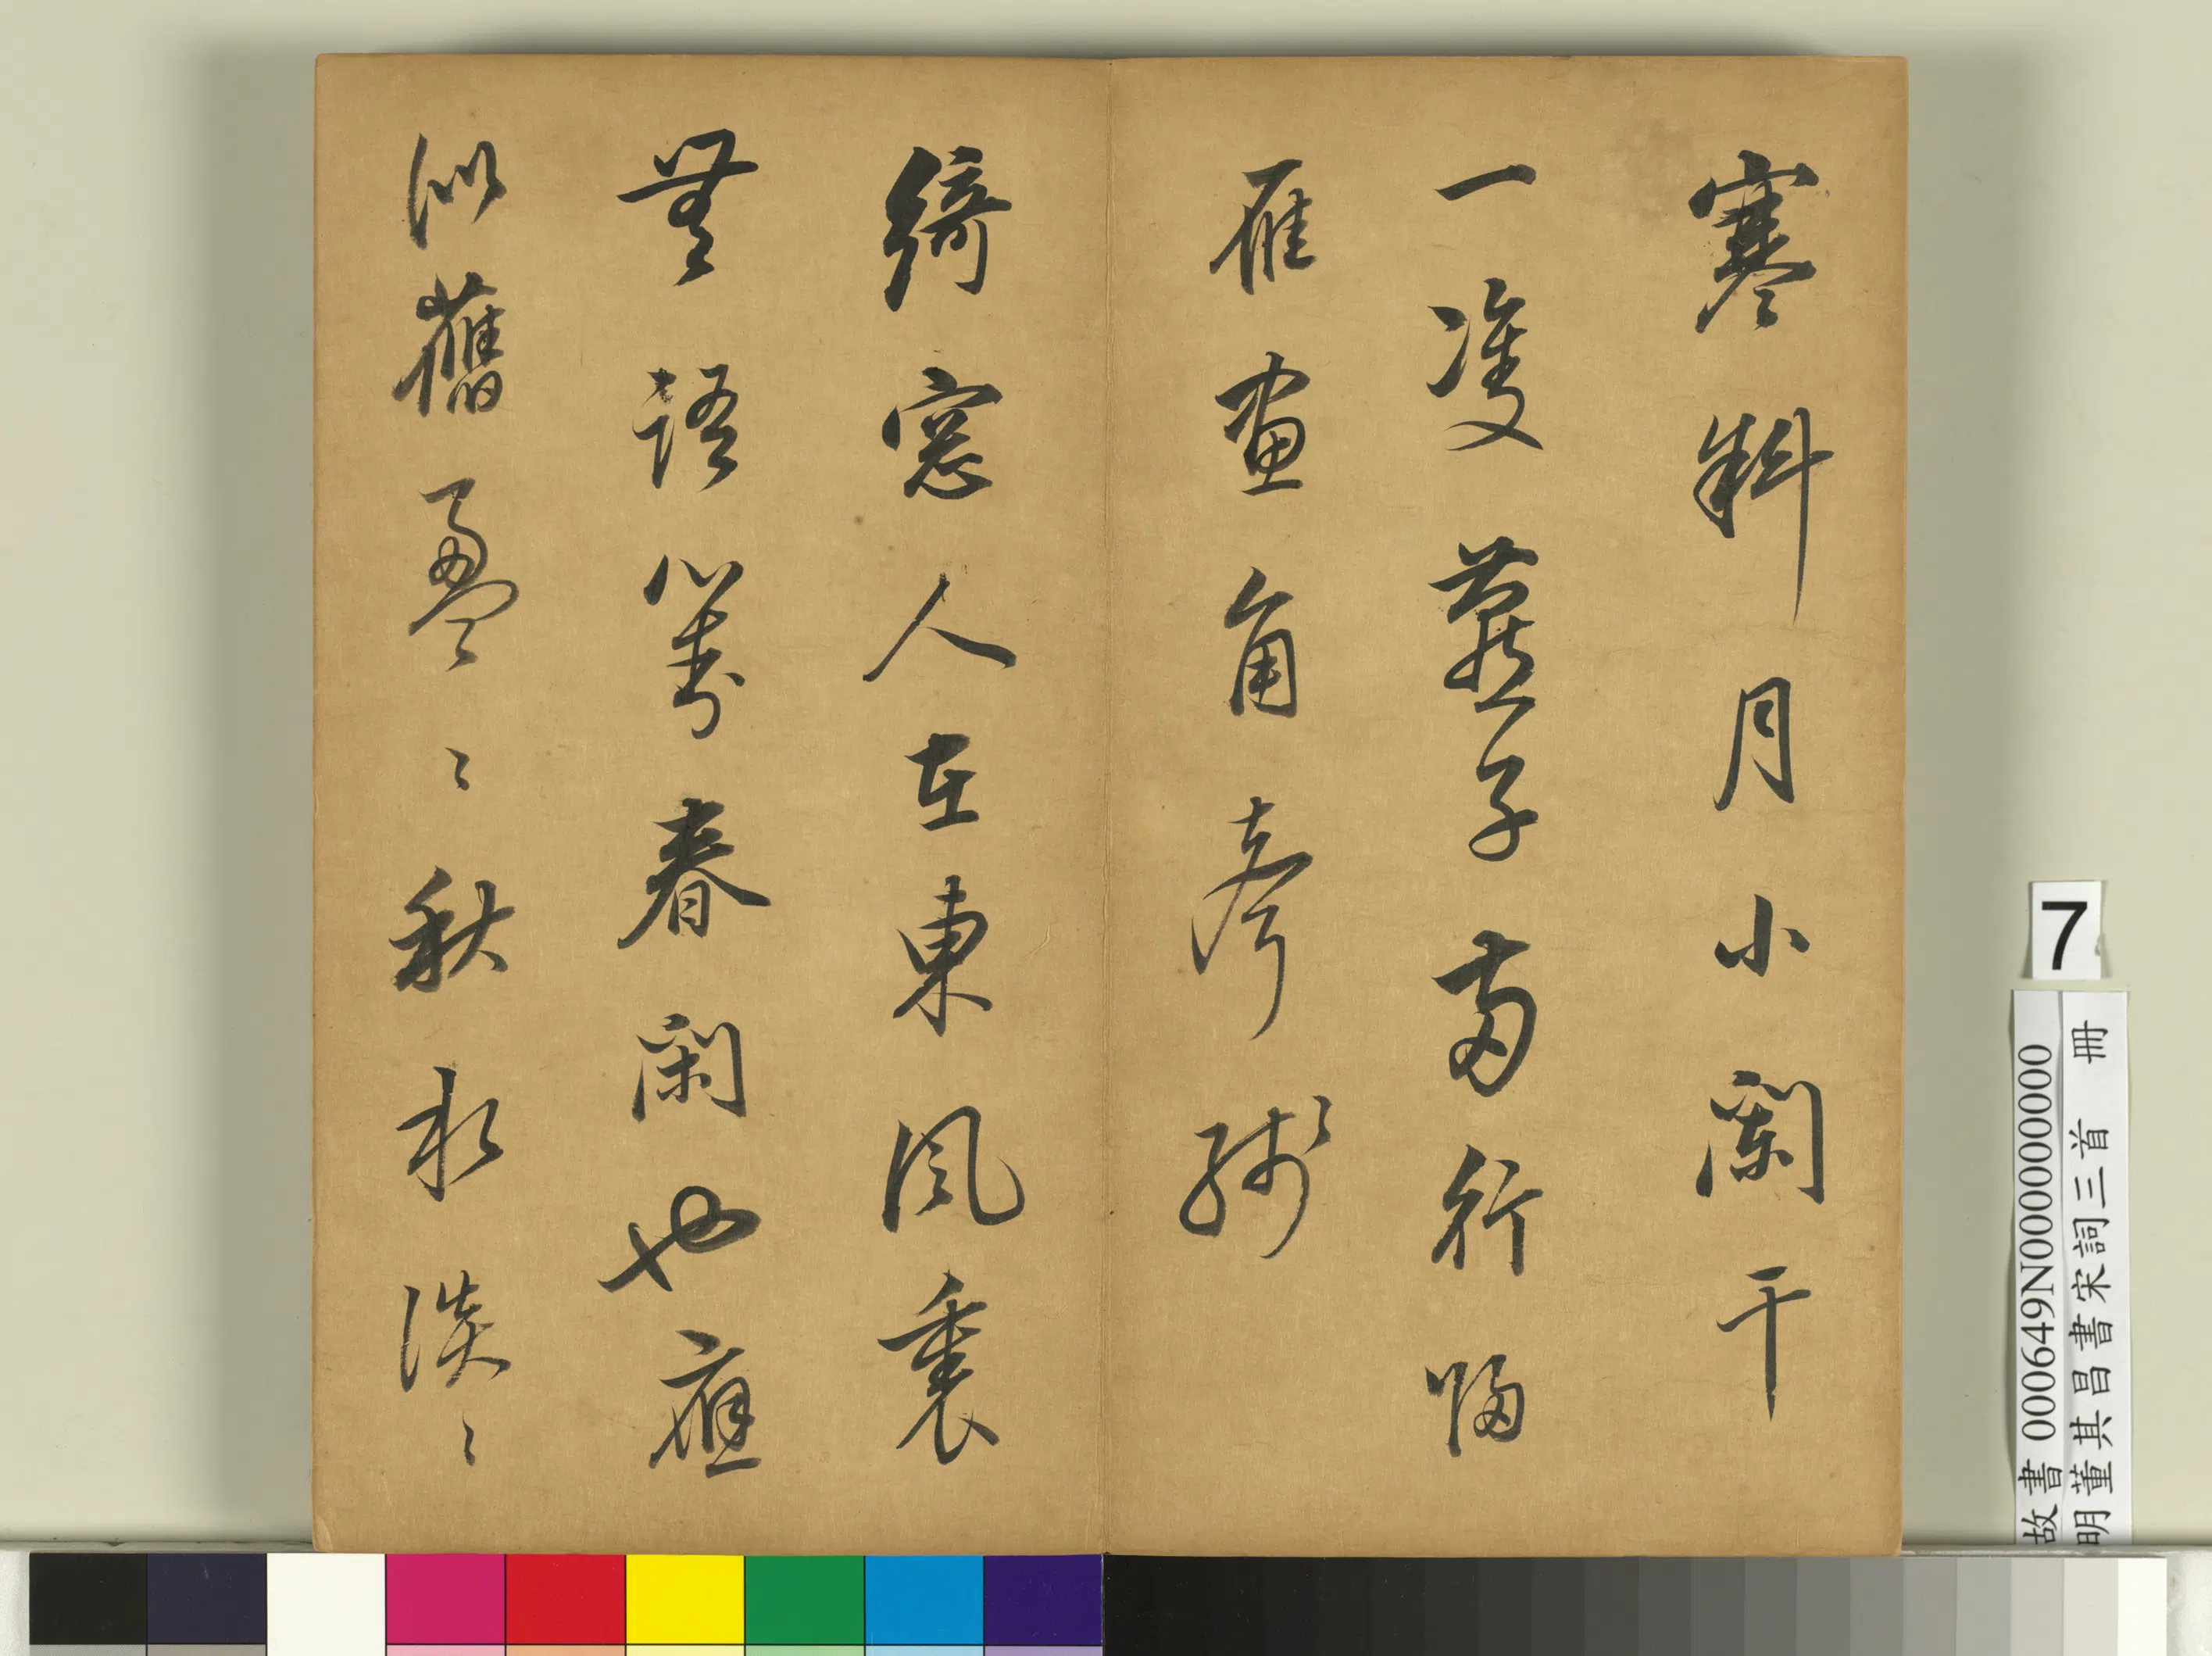 寒斜月小闌干
一雙燕子兩行歸
雁畫角聲殘
綺窓人在東風裏
無語對春閑也應
似舊盈〻秋水淡〻
7
故書 000649N000000000
明董其昌書宋詞三首 冊